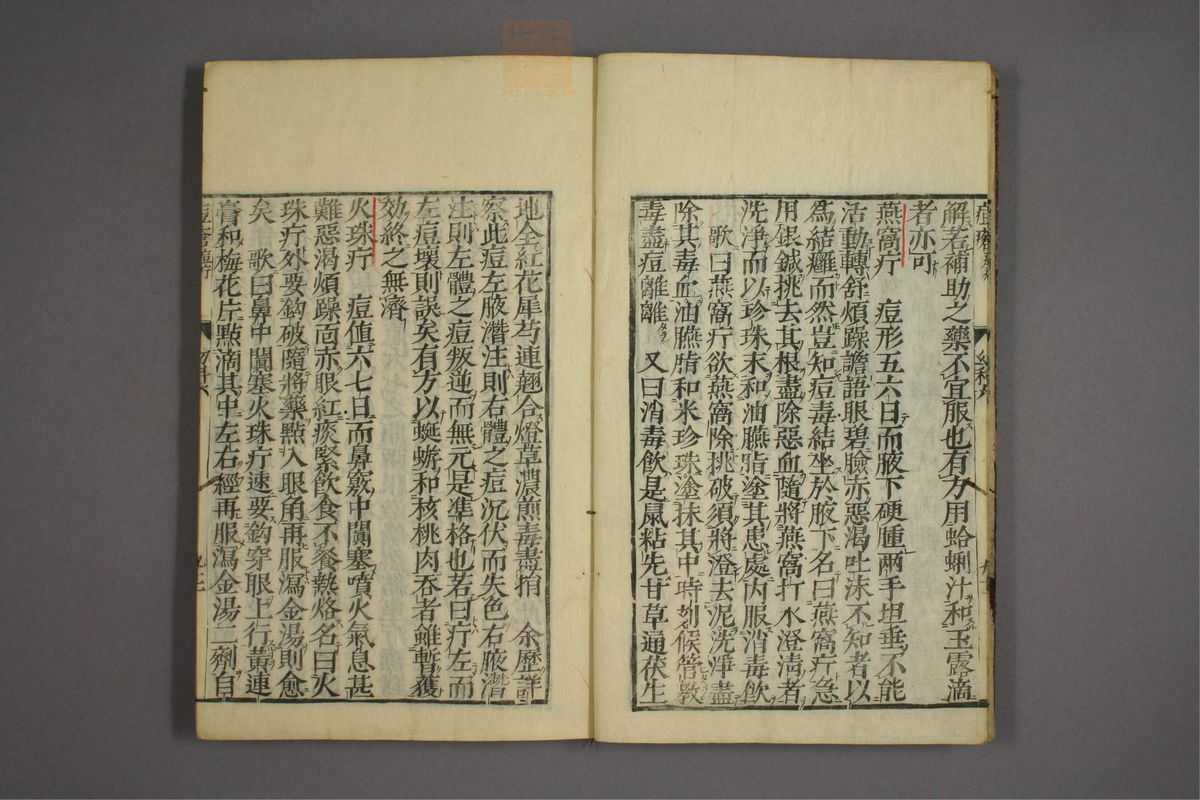 解若補助之藥不宜服也有方用蛤蜊汁和玉露滴
者亦可
燕窩疔　痘形五六日而腋下硬腫兩手坦垂不能
活動轉舒煩躁譫語眼碧臉赤惡渴吐沫不知者以
爲結癰而然豈知痘毒結坐於腋下名曰燕窩疔急
用銀鍼挑去其根盡除惡血隨將燕窩打水澄清者
洗淨而以珍珠末和油臙脂塗其患處内服消毒飲
歌曰燕窩疔欲燕窩除挑破須將澄去泥洗淨盡
除其毒血油臙脂和米珍珠塗抹其中時刻候管教
毒盡痘離離　又曰消毒飲是鼠粘先甘草通茯生
地全紅花犀芍連翹合燈草濃煎毒盡捐　余歷詳
察此痘左腋潛注則右體之痘沉伏而失色右腋潛
注則左體之痘叛逆而無元是準格也若曰疔左而
左痘壞則誤矣有方以蜒蚰和核桃肉吞者雖暫獲
効終之無濟
火珠疔　痘值六七日而鼻竅中闐塞噴火氣息甚
難惡渴煩躁面赤眼紅痰緊飲食不餐熱烙名曰火
珠疔外要鈎破隨將藥點入眼角再服瀉金湯則愈
矣　歌曰鼻中闐塞火珠疔速要鈎穿眼上行黃連
膏和梅花片點滴其中左右經再服瀉金湯二劑自